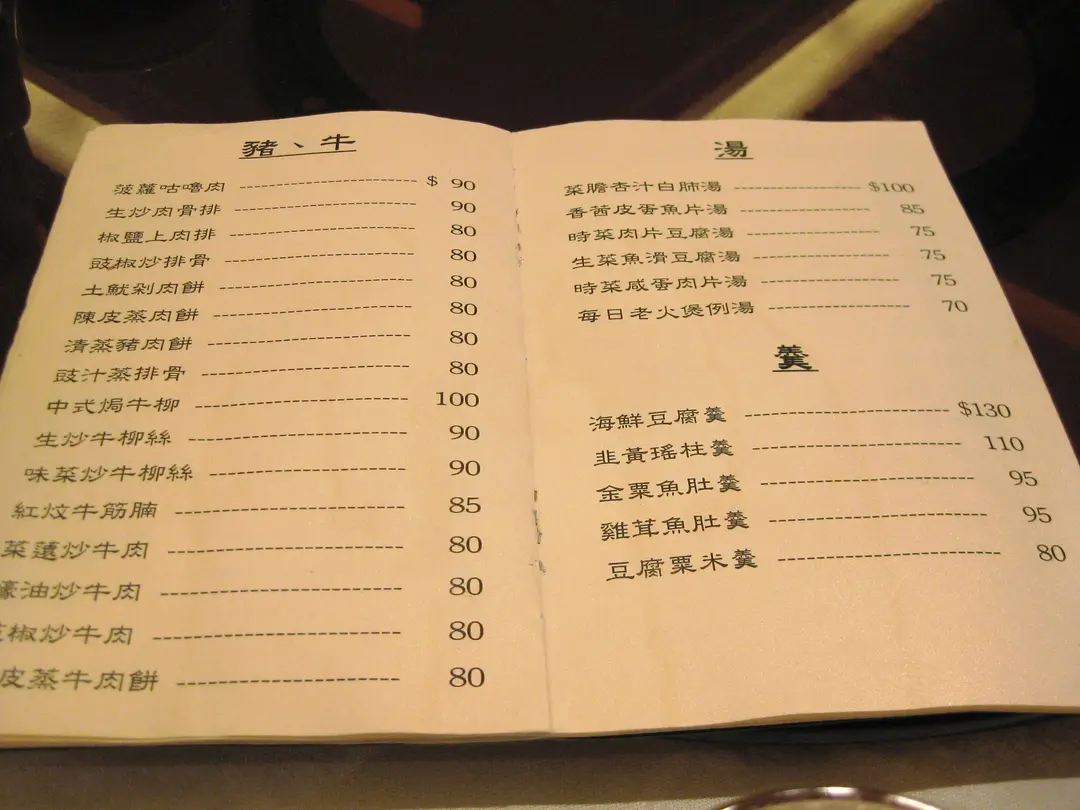 豬、牛
菠蘿咕嚕肉 $ 90
生炒肉骨排 90
椒鹽上肉排 80
豉椒炒排骨 80
土魷剁肉餅 80
陳皮蒸肉餅 80
清蒸豬肉餅 80
豉汁蒸排骨 80
中式焗牛柳 100
生炒牛柳絲 90
味菜炒牛柳絲 90
紅炆牛筋腩 85
菜薳炒牛肉 80
蠔油炒牛肉 80
椒炒牛肉 80
皮蒸牛肉餅 80
湯
菜膽杏汁白肺湯 $100
香茜皮蛋魚片湯 85
時菜肉片豆腐湯 75
生菜魚滑豆腐湯 75
時菜咸蛋肉片湯 75
每日老火煲例湯 70
羹
海鮮豆腐羹 $130
韭黃瑤柱羹 110
金粟魚肚羹 95
雞茸魚肚羹 95
豆腐粟米羹 80